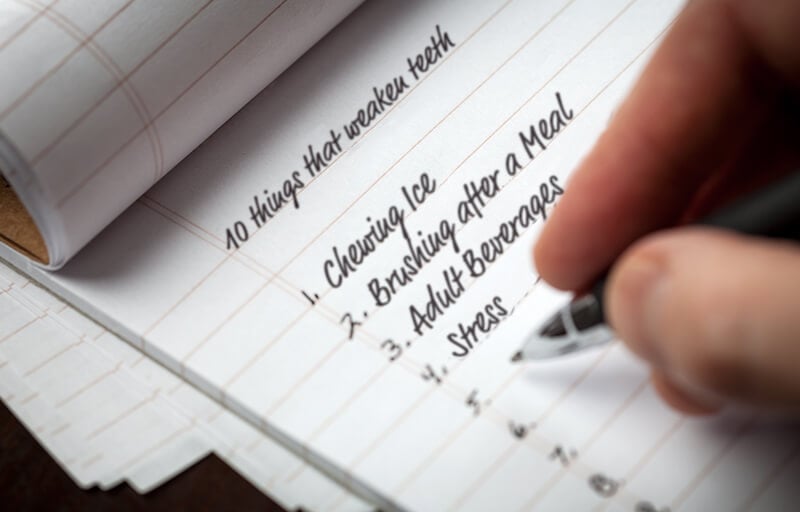 10 things that weaken teeth
1. Chewing Ice
2. Brushing after a Meal
3. Adult Beverages
4. Stress
5.
6.
7.
8.